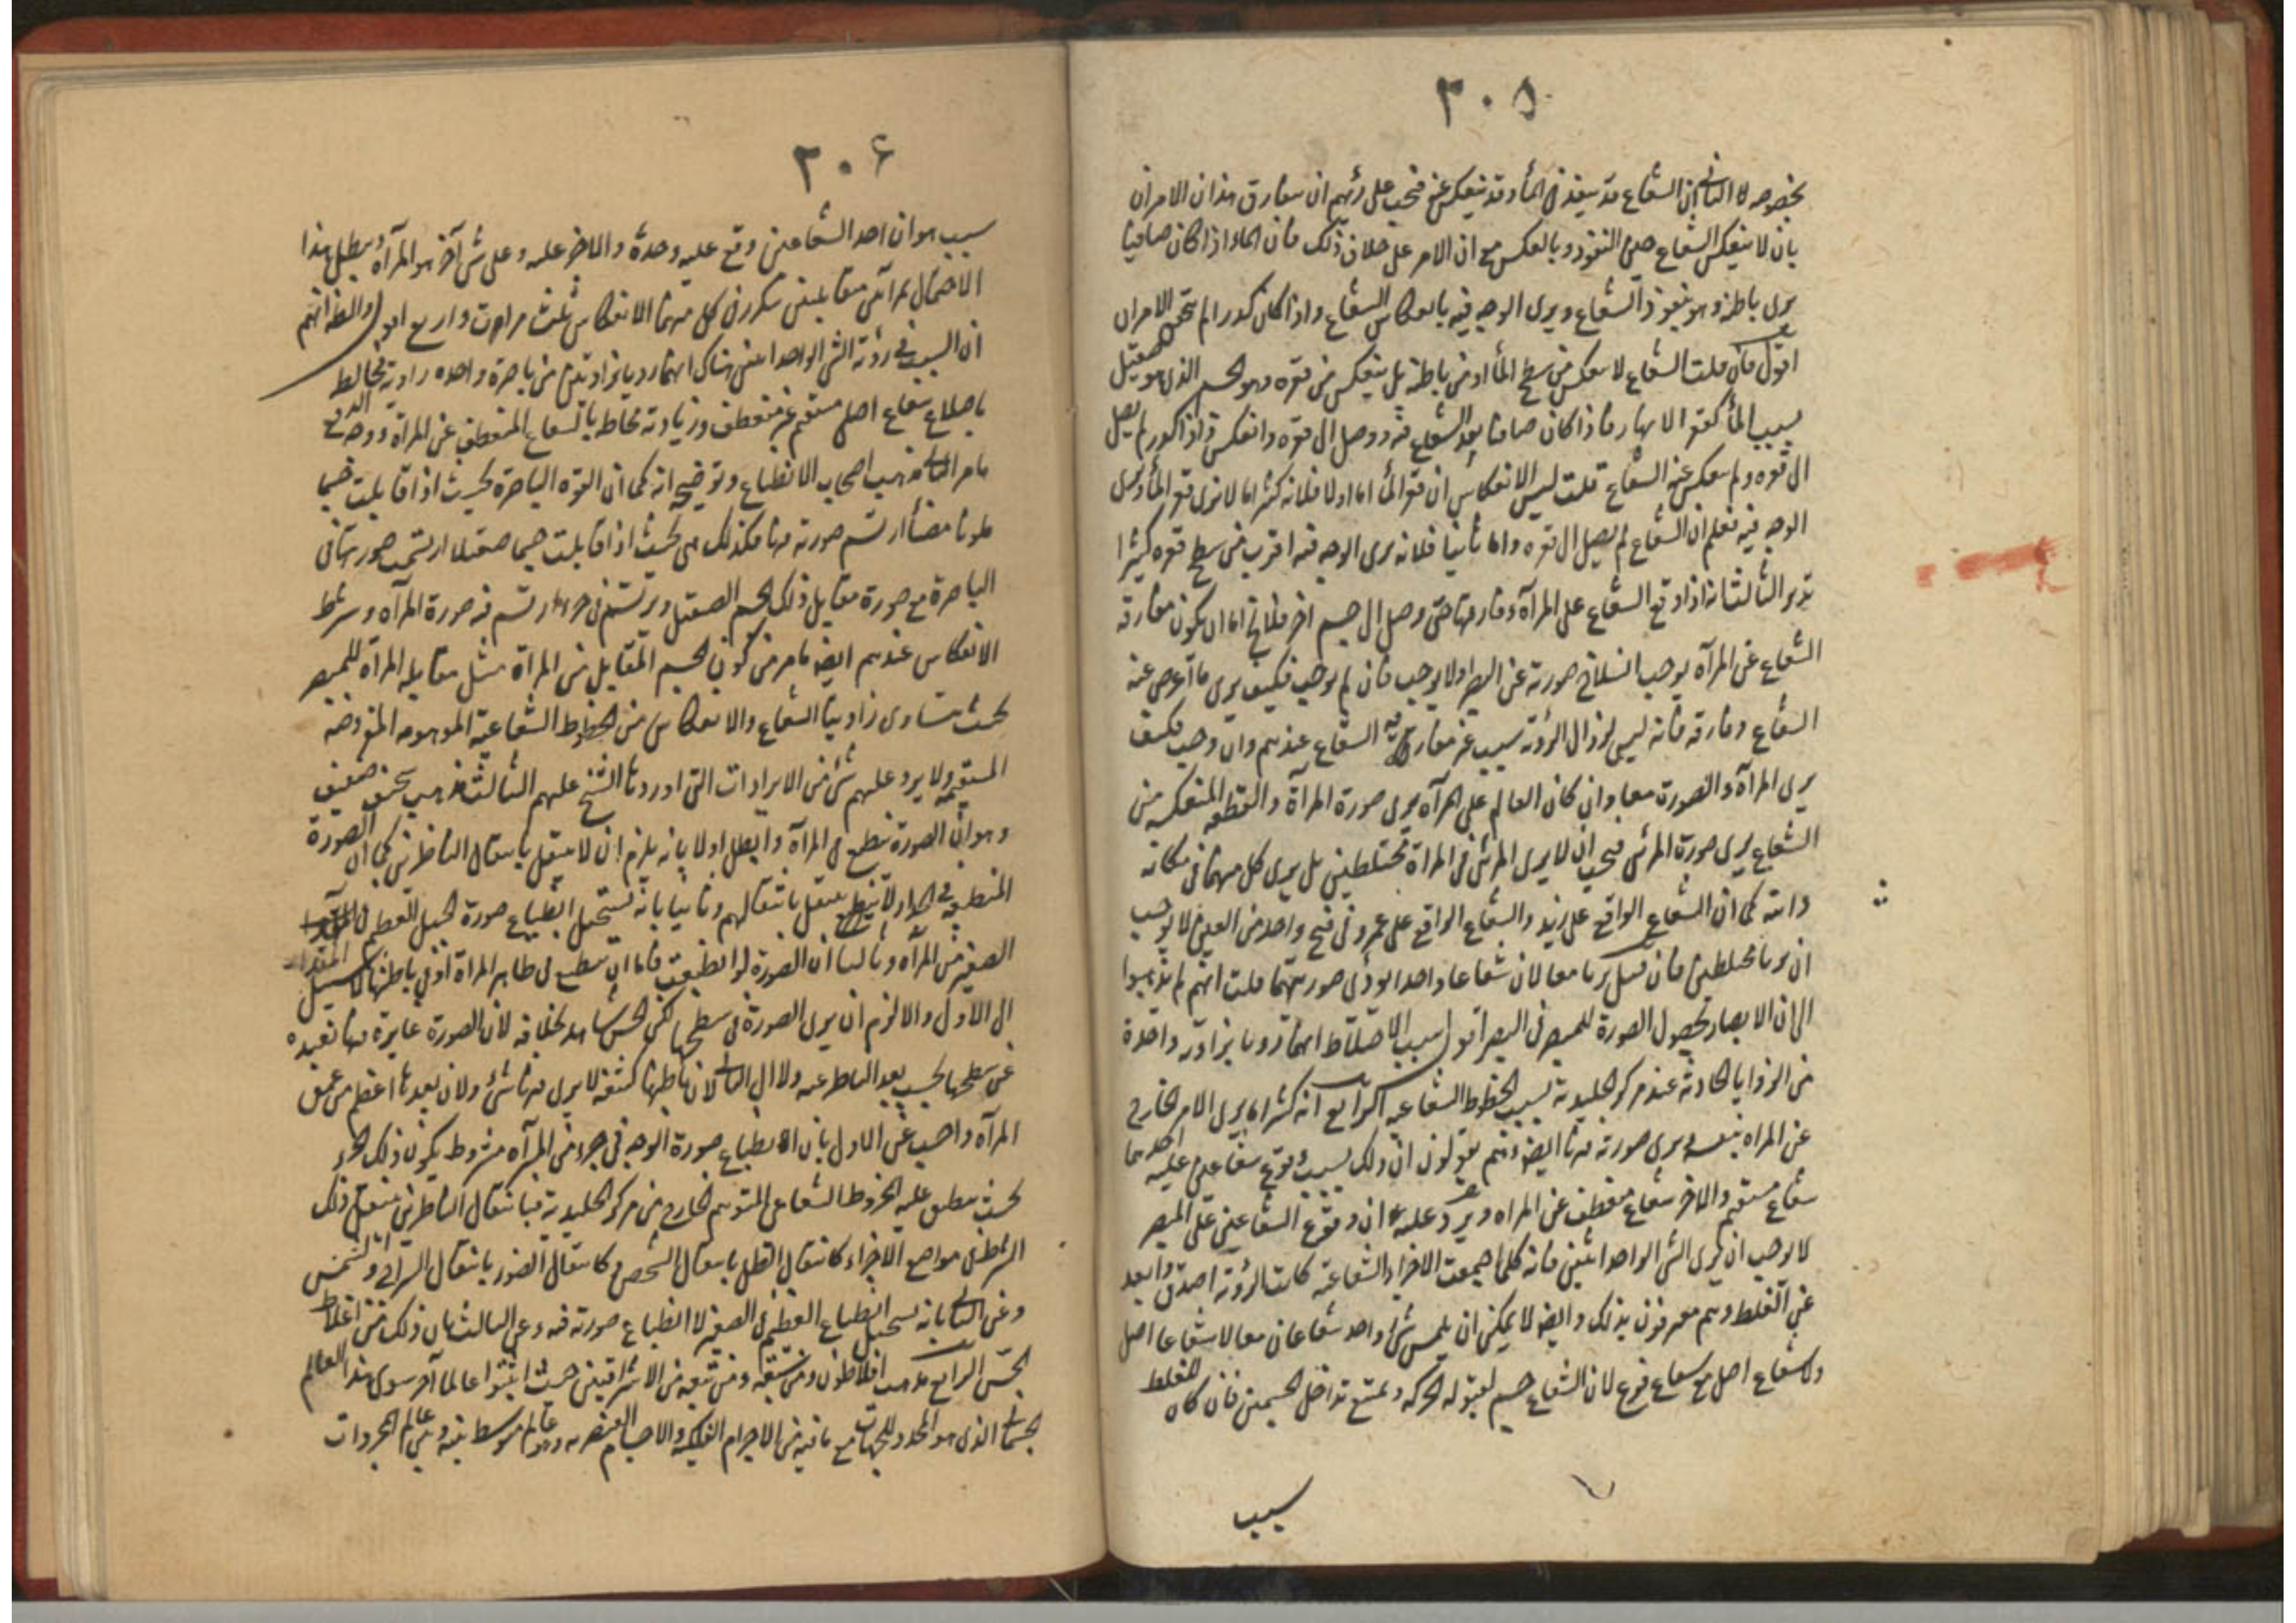 ٣٠٥
بخصوصه لا الثاني ان الشعاع قد ينفذ في الماء وقد ينعكس عنه فيجب على رئهم ان يفارق هذان الامران
بان لا ينعكس الشعاع حين النفوذ وبالعكس مع ان الامر على خلاف ذلك فان الماء اذا كان صافيا
يرى باطنه وهو بنفوذ الشعاع ويرى الوجه فيه بانعكاس الشعاع واذا كان كدورا لم يتحقق الامران
اقول فان قلت الشعاع لا ينعكس من سطح الماء او من باطنه بل ينعكس من قعره وهو الجسم الذي هو صقيل
بسبب الماء كقعر الانهار فاذا كان صافيا نفذ الشعاع فيه ووصل الى قعره وانعكس واذا كدور لم يصل
الى قعره ولم ينعكس عنه الشعاع قلت ليس الانعكاس من قعر الماء اما اولا فلانه كثيرا ما لا نرى قعر الماء ونرى
الوجه فيه فعلم ان الشعاع لم يصل الى قعره واما ثانيا فلانه يرى الوجه فيه اقرب من سطح قعره كثيرا
تدبر الثالث انه اذا وقع الشعاع على المرآة وفارقها حتى وصل الى جسم اخر فلا يخ اما ان يكون مفارقة
الشعاع عن المرآة يوجب انسلاخ صورته عن البصر اولا يوجب فان لم يوجب فكيف يرى ما اعرض عنه
الشعاع وفارقه فانه ليس لزوال الرؤية سبب غير مفارقة الشعاع عندهم وان وجب فكيف
يرى المرآة والصورة معا وان كان القائم على المرآة يرى صورة المرآة والقطعة المنعكسة من
الشعاع يرى صورة المرئي فيجب ان لا يرى المرئي في المرآة مختلطين بل يرى كل منهما في مكانه
وانت كما ان الشعاع الواقع على زيد والشعاع الواقع على عمرو في فتح واحد من العين لا يوجب
ان يريا مختلطين فان قيل يريا معا لان شعاعا واحدا يؤدي صورتهما قلت انهم لم يذهبوا
الى ان الابصار بحصول الصورة للمبصر في البصر اقول سبب الاختلاط انهما رويا بزاوية واحدة
من الزوايا الحادثة عند مركز الجليدية بسبب الخطوط الشعاعيه الرابع انه كثيرا ما يرى الامر الخارج
عن المرآة بنفسه ويرى صورته فيها ايضا وهم يقولون ان ذلك بسبب وقوع شعاعين عليه احدهما
شعاع مستقيم والاخر شعاع منعطف عن المرآه ويرد عليه ان وقوع الشعاعين على المبصر
لا يوجب ان يرى الشئ الواحد اثنين فانه كلما اجتمعت الاجزاء الشعاعية كانت الرؤية اصدق وابعد
عن الغلط وهم معترفون بذلك وايضا لا يمكن ان يلمس شئ واحد شعاعان معا لا شعاعا اصل
ولا شعاع اصل مع شعاع فرع لان الشعاع جسم لقبوله الحركة ويمتنع تداخل الجسمين فان كان للغلط
سبب
٣٠٦
سبب هو ان احد الشعاعين وقع عليه وحده والاخر عليه وعلى شئ آخر هو المرآة ويبطل هذا
الاحتمال بمرآتين متقابلتين يتكرر في كل منهما الانعكاس ثلث مرات واربع اقول والظ انهم
ان السبب في رؤية الشئ الواحد اثنين هناك انهما رويا بزاويتين من باصرة واحده زاوية يحاط
باضلاع شعاع اصلي مستقيم غير منعطف وزاوية يحاط بالشعاع المنعطف عن المرآة ووجه الدفع
ما مر الثاني مذهب اصحاب الانطباع وتوضيحه انه كما ان القوة الباصرة بحيث اذا قابلت جسما
ملونا مضيئا ارتسم صورته فيها فكذلك هي بحيث اذا قابلت جسما صقيلا ارتسمت صورته في
الباصرة مع صورة مقابل ذلك الجسم الصقيل ويرتسم في جزء ارتسم فيه صورة المرآه وشرط
الانعكاس عندهم ايضا ما مر من كون الجسم المقابل من المرآة مثل مقابلة المرآة للمبصر
بحيث يتساوى زاويتا الشعاع والانعكاس من الخطوط الشعاعية الموهومه المفروضة
المستقيمه ولا يرد عليهم شئ من الايرادات التي اوردها الشيخ عليهم الثالث مذهب سخيف ضعيف
وهو ان الصورة ينطبع في المرآة وابطل اولا بانه يلزم ان لا ينتقل بانتقال الناظرين كما ان الصورة
المنطبعة في الجدار لا ينتقل بانتقالهم وثانيا بانه يستحيل انطباع صورة الجبل العظيم في المقدار
الصغير من المرآه وثالثا ان الصورة لو انطبعت فاما ان ينطبع في ظاهر المرآة او في باطنها لا سبيل
الى الاول والا لزم ان يرى الصورة في سطحها لكن الحس شاهد بخلافه لان الصورة غايرة فيها بعيده
عن سطحها بحسب بعد الناظر عنه ولا الى الثاني لان باطنها كثيفة لا يرى فيها شئ ولان بعدها اعظم من عمق
المرآه واجيب عن الاول بان انطباع صورة الوجه في جزء من المرآه مشروط بكون ذلك الجزء
بحيث ينطبق عليه الخروط الشعاعي المتوهم الخارج من مركز الجليدية فبانتقال الناظرين ينتقل ذلك
الشرط في مواضع الاجزاء كانتقال الظل بانتقال الشخص وكانتقال الضوء بانتقال السراج او الشمس
وعن الثاني بانه يستحيل انطباع العظيم في الصغير لا انطباع صورته فيه وعن الثالث بان ذلك من اغلاط
الحس الرابع مذهب افلاطون ومن سبقه ومن تبعه من الاشراقيين حيث اثبتوا عالما آخر سوى هذا العالم
الجسماني الذي هو المحدد للجهات مع ما فيه من الاجرام الفلكية والاجسام العنصريه وهو عالم متوسط بينه وبين عالم المجردات